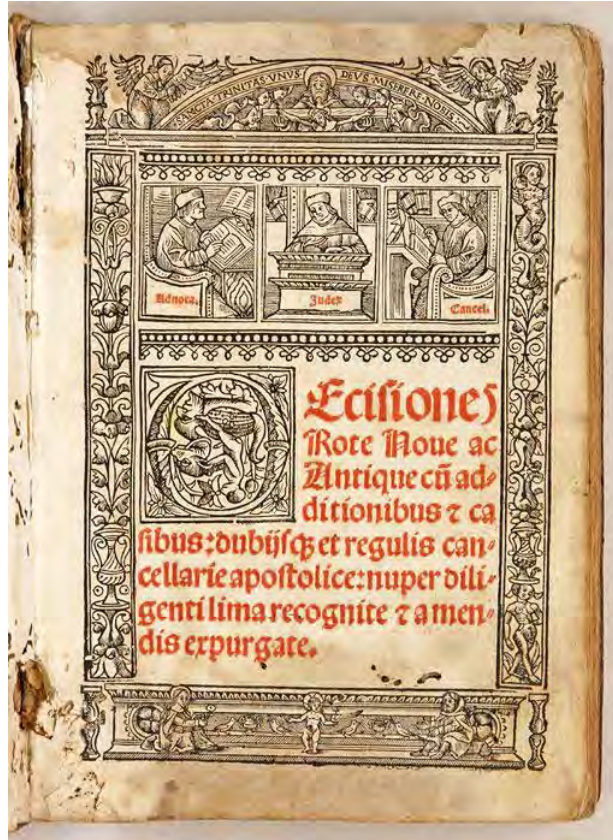 SANCTA·TRINITAS·VNVS DEVS·MISERERE·NOBIS·
Adnoca. Judex Cancel.
DEcisiones
Rote Noue ac
Antique cũ ad⸗
ditionibus ⁊ ca
sibus: dubijsqꝫ et regulis can⸗
cellarie apostolice: nuper dili⸗
genti lima recognite ⁊ a men⸗
dis expurgate.